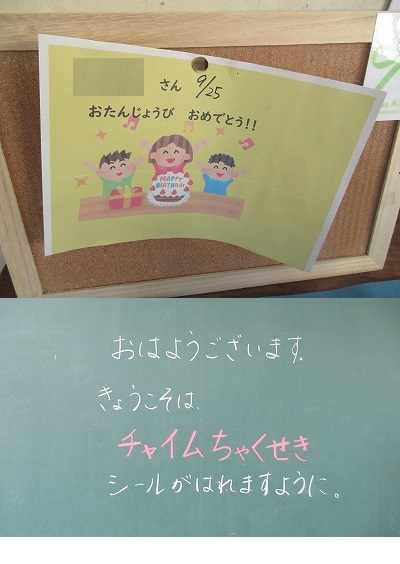 さん 9/25
おたんじょうび おめでとう!!
HAPPY
BIRTHDAY
おはようございます。
きょうこそは、
チャイムちゃくせき
シールがはれますように。